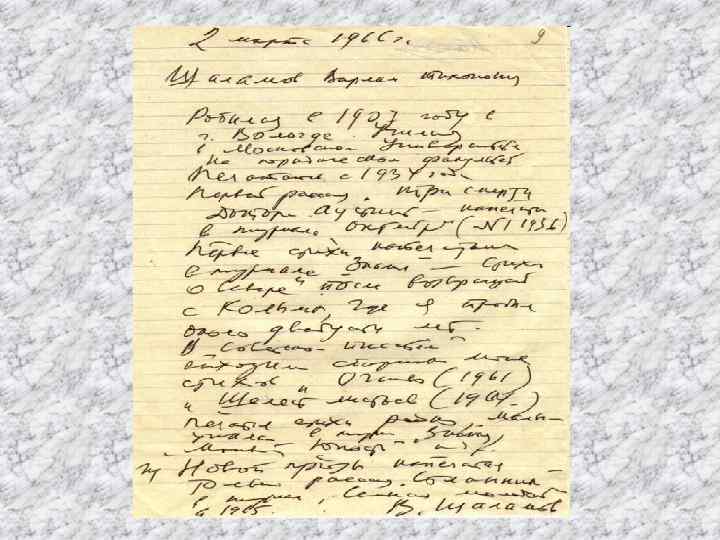 2 марта 1966 г. 9
Шаламов Варлам Тихонович
Родился в 1907 году в
г. Вологде. Учился
в Московском Университете
на юридическом факультете
Печатаюсь с 1934 года
Первый рассказ „Три смерти
Доктора Аустино“ – напечатан
в журнале „Октябрь“ (№ 1 1936)
Первые стихи напечатаны
в журнале „Знамя“ – стихи
о Севере после возвращения
с Колымы, где я пробыл
около двадцати лет.
В „Советском писателе“
выходили сборники моих
стихов „Огниво“ (1961)
„Шелест листьев“ (1964)
Печатал стихи
в журн. „Знамя“,
„Москва“, „Юность“
Из Новой прозы напечатан
рассказ „Стланик“
в журнале „Сельская молодежь“
в 1965. В. Шаламов